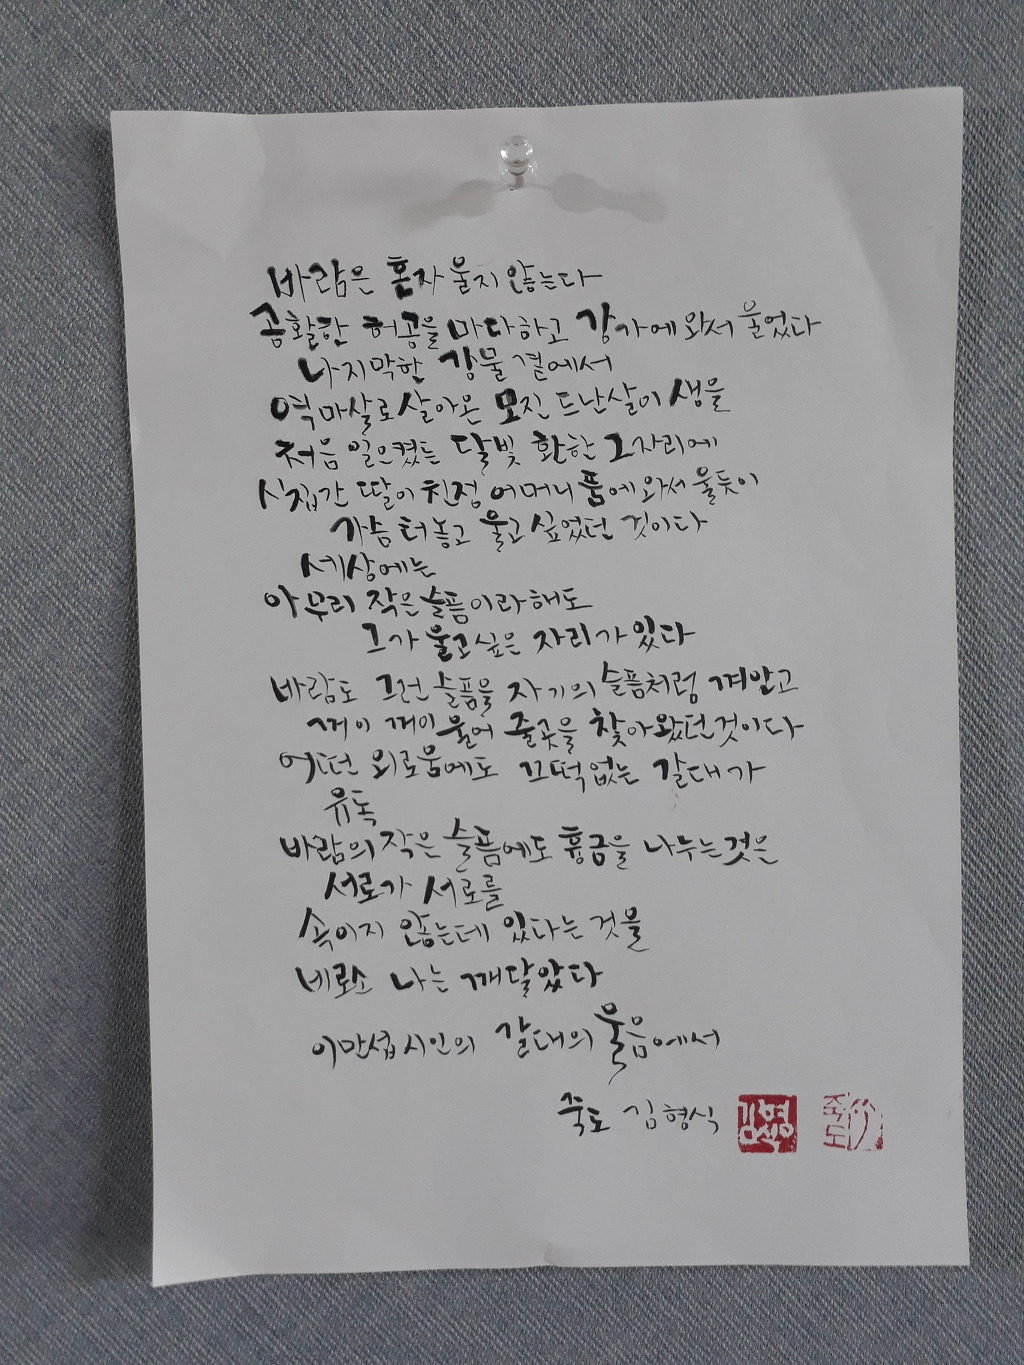 바람은 혼자 울지 않는다
공활한 허공을 마다하고 강가에 와서 울었다
나지막한 강물 곁에서
역마살로 살아온 모진 드난살이 생을
처음 일으켰는 달빛 환한 그 자리에
시집간 딸이 친정 어머니 품에 와서 울듯이
가슴 터놓고 울고 싶었던 것이다
세상에는
아무리 작은 슬픔이라 해도
그가 울고 싶은 자리가 있다
바람도 그런 슬픔을 자기의 슬픔처럼 껴안고
꺼이 꺼이 울어 줄 곳을 찾아왔던 것이다
어떤 외로움에도 끄떡없는 갈대가
유독
바람의 작은 슬픔에도 흉금을 나누는 것은
서로가 서로를
속이지 않는데 있다는 것을
비로소 나는 깨달았다
이만섭 시인의 갈대의 울음에서
죽도 김형식 김형식 죽도